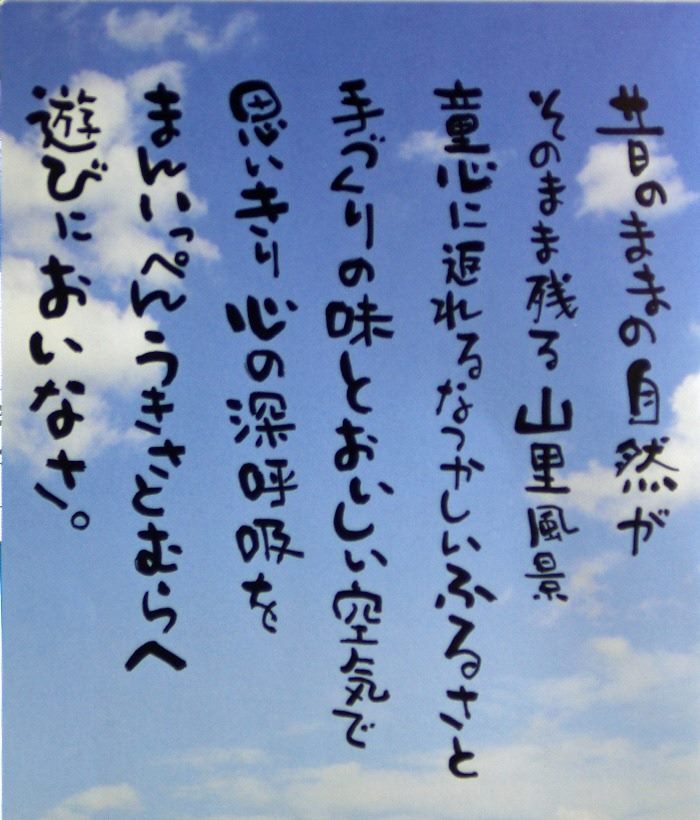 昔のままの自然が
そのまま残る山里風景
童心に返れるなつかしいふるさと
手づくりの味とおいしい空気で
思いきり心の深呼吸を
まんいっぺんうきさとむらへ
遊びにおいなさ。